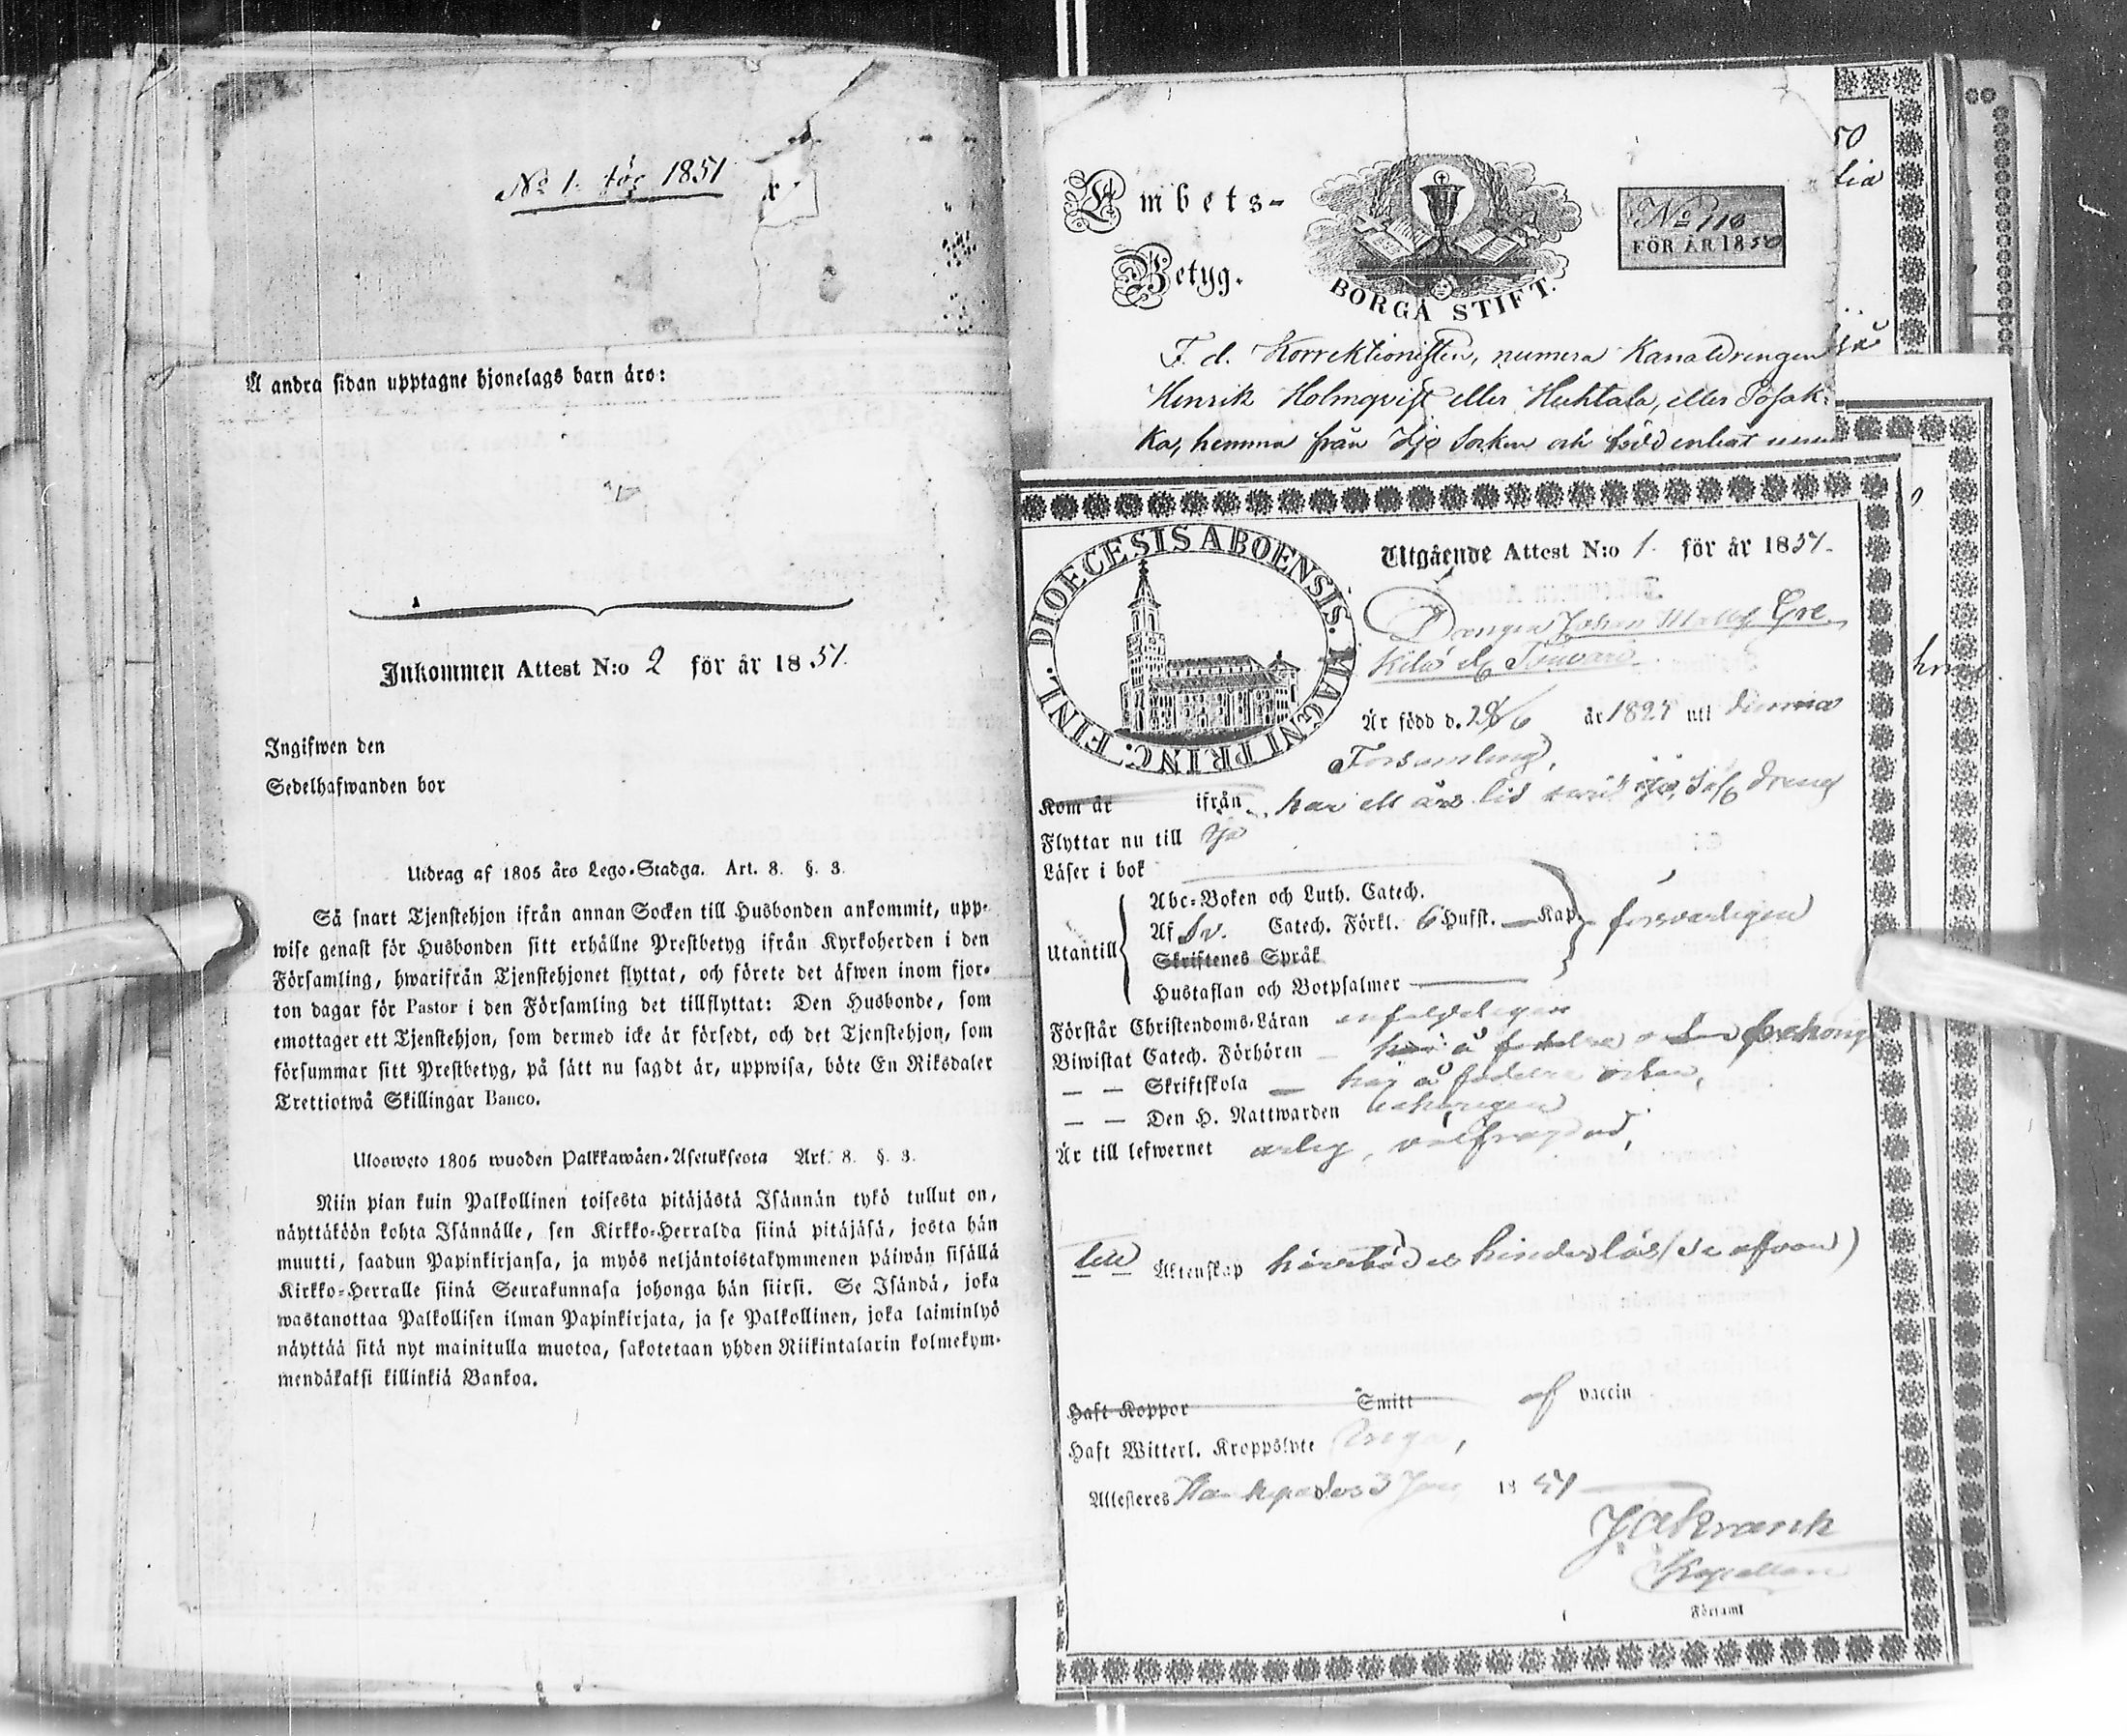 No 1. för 1851
Å andra sidan upptagne hjonelags barn äro:
Inkommen Attest N:o 2 för år 1851.
Ingifwen den
Sedelhafwanden bor
Utdrag af 1805 års Lego-Stadga. Art. 8. §. 3.
Så snart Tjenstehjon ifrån annan Socken till Husbonden ankommit, upp-
wise genast för Husbonden sitt erhållne Prestbetyg ifrån Kyrkoherden i den
Församling, hwarifrån Tjenstehjonet flyttat, och förete det äfwen inom fjor-
ton dagar för Pastor i den Församling det tillflyttat: Den Husbonde, som
emottager ett Tjenstehjon, som dermed icke är försedt, och det Tjenstehjon, som
försummar sitt Prestbetyg, på sätt nu sagdt är, uppwisa, böte En Riksdaler
Trettiotwå Skillingar Banco.
Ulosweto 1805 wuoden Palkkawäen-Asetuksesta Art. 8. §. 3.
Niin pian kuin Palkollinen toisesta pitäjästä Isännän tykö tullut on,
näyttäköön kohta Isännälle, sen Kirkko-Herralda siinä pitäjäsä, josta hän
muutti, saadun Papinkirjansa, ja myös neljäntoistakymmenen päiwän sisällä
Kirkko-Herralle siinä Seurakunnasa johonga hän siirsi. Se Isändä, joka
wastanottaa Palkollisen ilman Papinkirjata, ja se Palkollinen, joka laiminlyö
näyttää sitä nyt mainitulla muotoa, sakotetaan yhden Riikintalarin kolmekym-
mendäkaksi killinkiä Bankoa.
Embets-
Betyg.
BORGÅ STIFT.
No 110
FÖR ÅR 1850
F. d. Korrektionisten, numera Kanaldrengen
Henrik Holmqvist eller Huhtala, eller Posak-
ka, hemma från Ijo Socken och född enligt
DIOECESIS ABOENSIS. MAGNI PRINC. FINL.
Utgående Attest N:o 1. för år 1851.
Drengen Johan
Är född d. 28/6 år 182 uti
Församling,
Kom år ifrån har ett års tid dreng
Flyttar nu till Ijo
Läser i bok
Utantill
Abc-Boken och Luth. Catech.
Af Sv. Catech. Förkl. 6 Hufst. Kap. försvarligen
Skriftenes Språk
Hustaflan och Botpsalmer
Förstår Christendoms-Läran enfaldeligen
Biwistat Catech. Förhören
— — Skriftskola å födelse orten,
— — Den H. Nattwarden behörigen
Är till lefwernet ärlig, välfrägdad,
till Äktenskap hinderlös
Haft Koppor Smitt af vaccin
Haft Witterl. Kroppslyte Inga,
Attesteres 3 Jan 1851
Kapellan
Församl